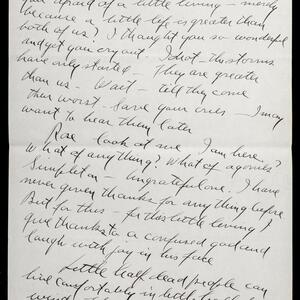 you afraid of a little living — merely
because a little life is greater than
both of us? I thought you so wonderful
and yet you cry out. Idiot — the storms
have only started — They are greater
than us — Wait — till they come
their worst — save your cries — I may
want to hear them later
Rose — look at me — I am here.
What of anything? What of agonies
Simpleton — ungrateful one. I have
never given thanks for anything before
But for this — for this little living I
give thanks to a confused god and
laugh with joy in his face
Little half dead people can
live comfortably in